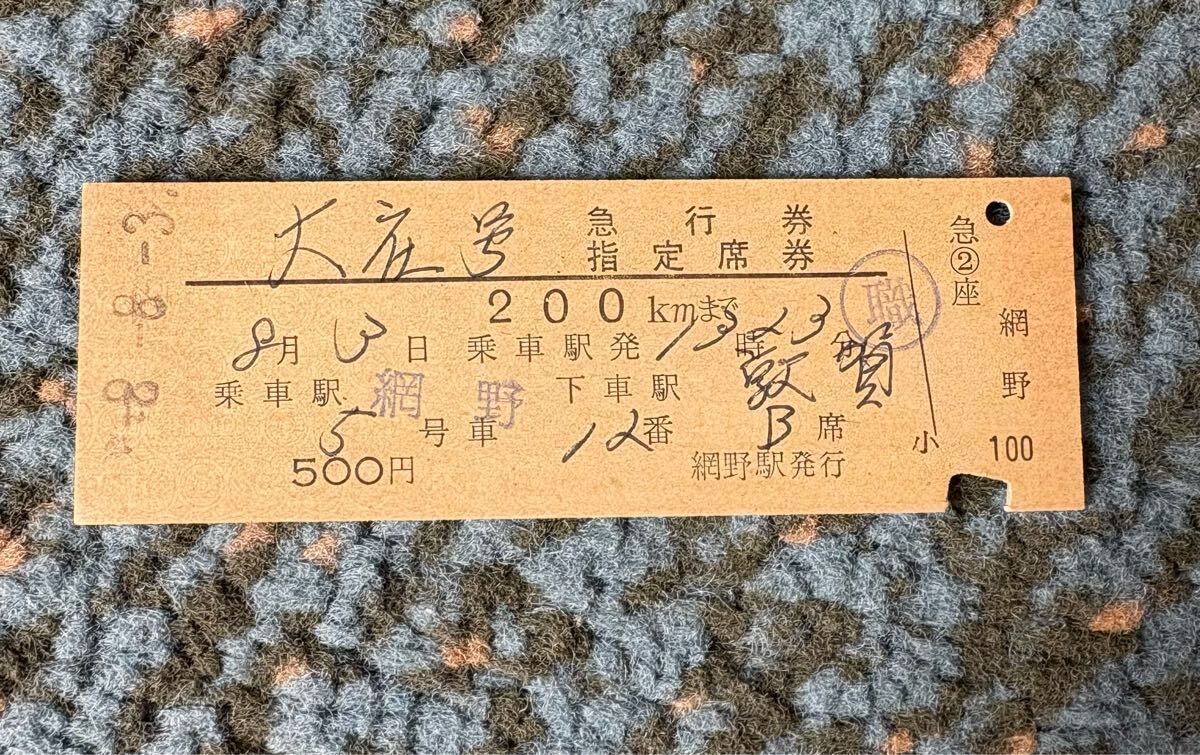 大庄号 急行券
指定席券
200kmまで
8月3日 乗車駅発13時23分
乗車駅 網野 下車駅 敦賀
5号車 12番 B席
500円 網野駅発行
職
小
急②座
網野
100